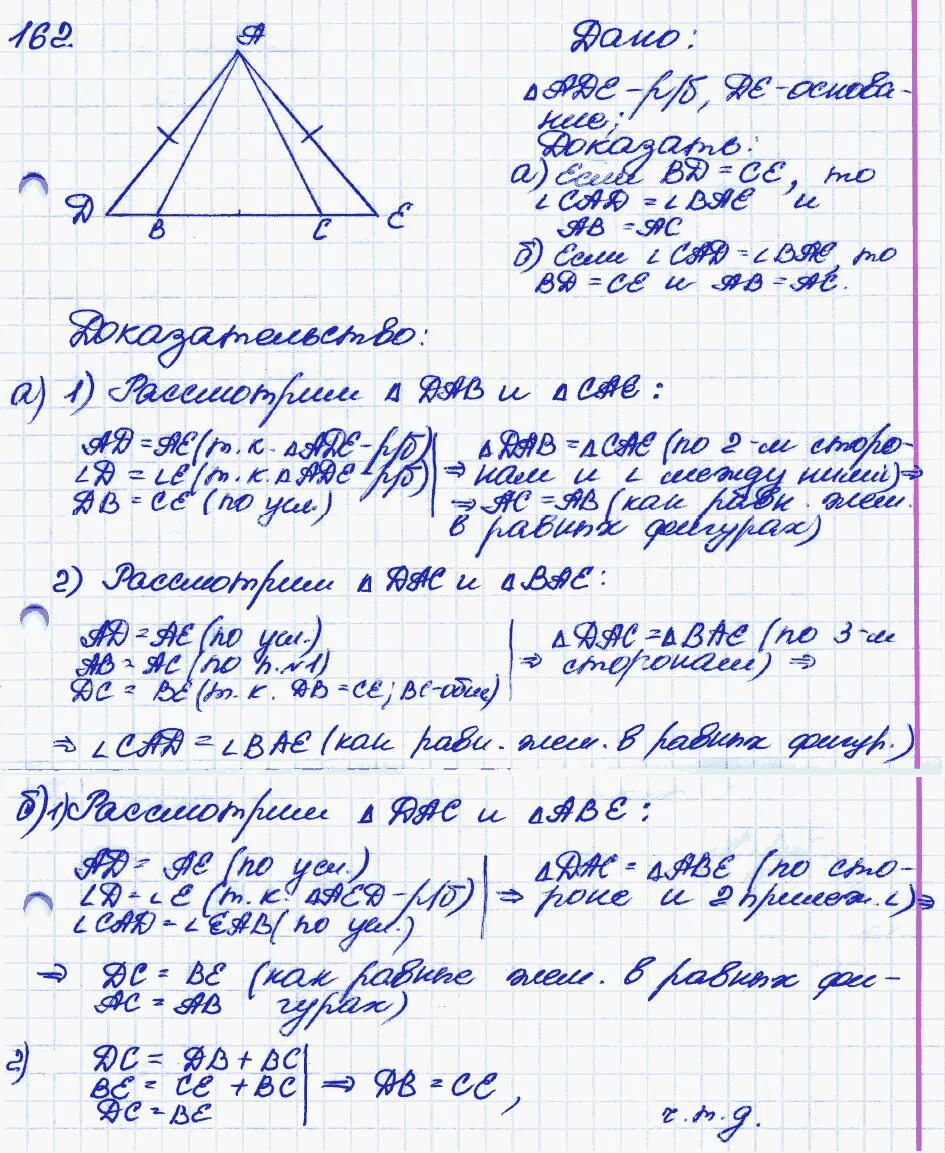 162.
A
D
B
C
E
Дано:
△ADE – р/б, DE – основа-
ние;
Доказать:
а) Если BD = CE, то
∠CAD = ∠BAE и
AB = AC
б) Если ∠CAD = ∠BAE, то
BD = CE и AB = AC.
Доказательство:
а) 1) Рассмотрим △DAB и △CAE:
AD = AE (т.к. △ADE – р/б)
∠D = ∠E (т.к. △ADE – р/б)
DB = CE (по усл.)
⇒ △DAB = △CAE (по 2-м сторо-
нам и ∠ между ними) ⇒
⇒ AC = AB (как равн. элем.
в равных фигурах)
2) Рассмотрим △DAC и △BAE:
AD = AE (по усл.)
AB = AC (по п. №1)
DC = BE (т.к. DB = CE; BC – общ)
⇒ △DAC = △BAE (по 3-м
сторонам) ⇒
⇒ ∠CAD = ∠BAE (как равн. элем. в равных фигур.)
б) 1) Рассмотрим △DAC и △ABE:
AD = AE (по усл.)
∠D = ∠E (т.к. △AED – р/б)
∠CAD = ∠EAB (по усл.)
⇒ △DAC = △ABE (по сто-
роне и 2 прилеж. ∠) ⇒
⇒ DC = BE (как равные элем. в равных фи-
AC = AB гурах)
2) DC = DB + BC
BE = CE + BC
DC = BE
⇒ DB = CE,
ч.т.д.